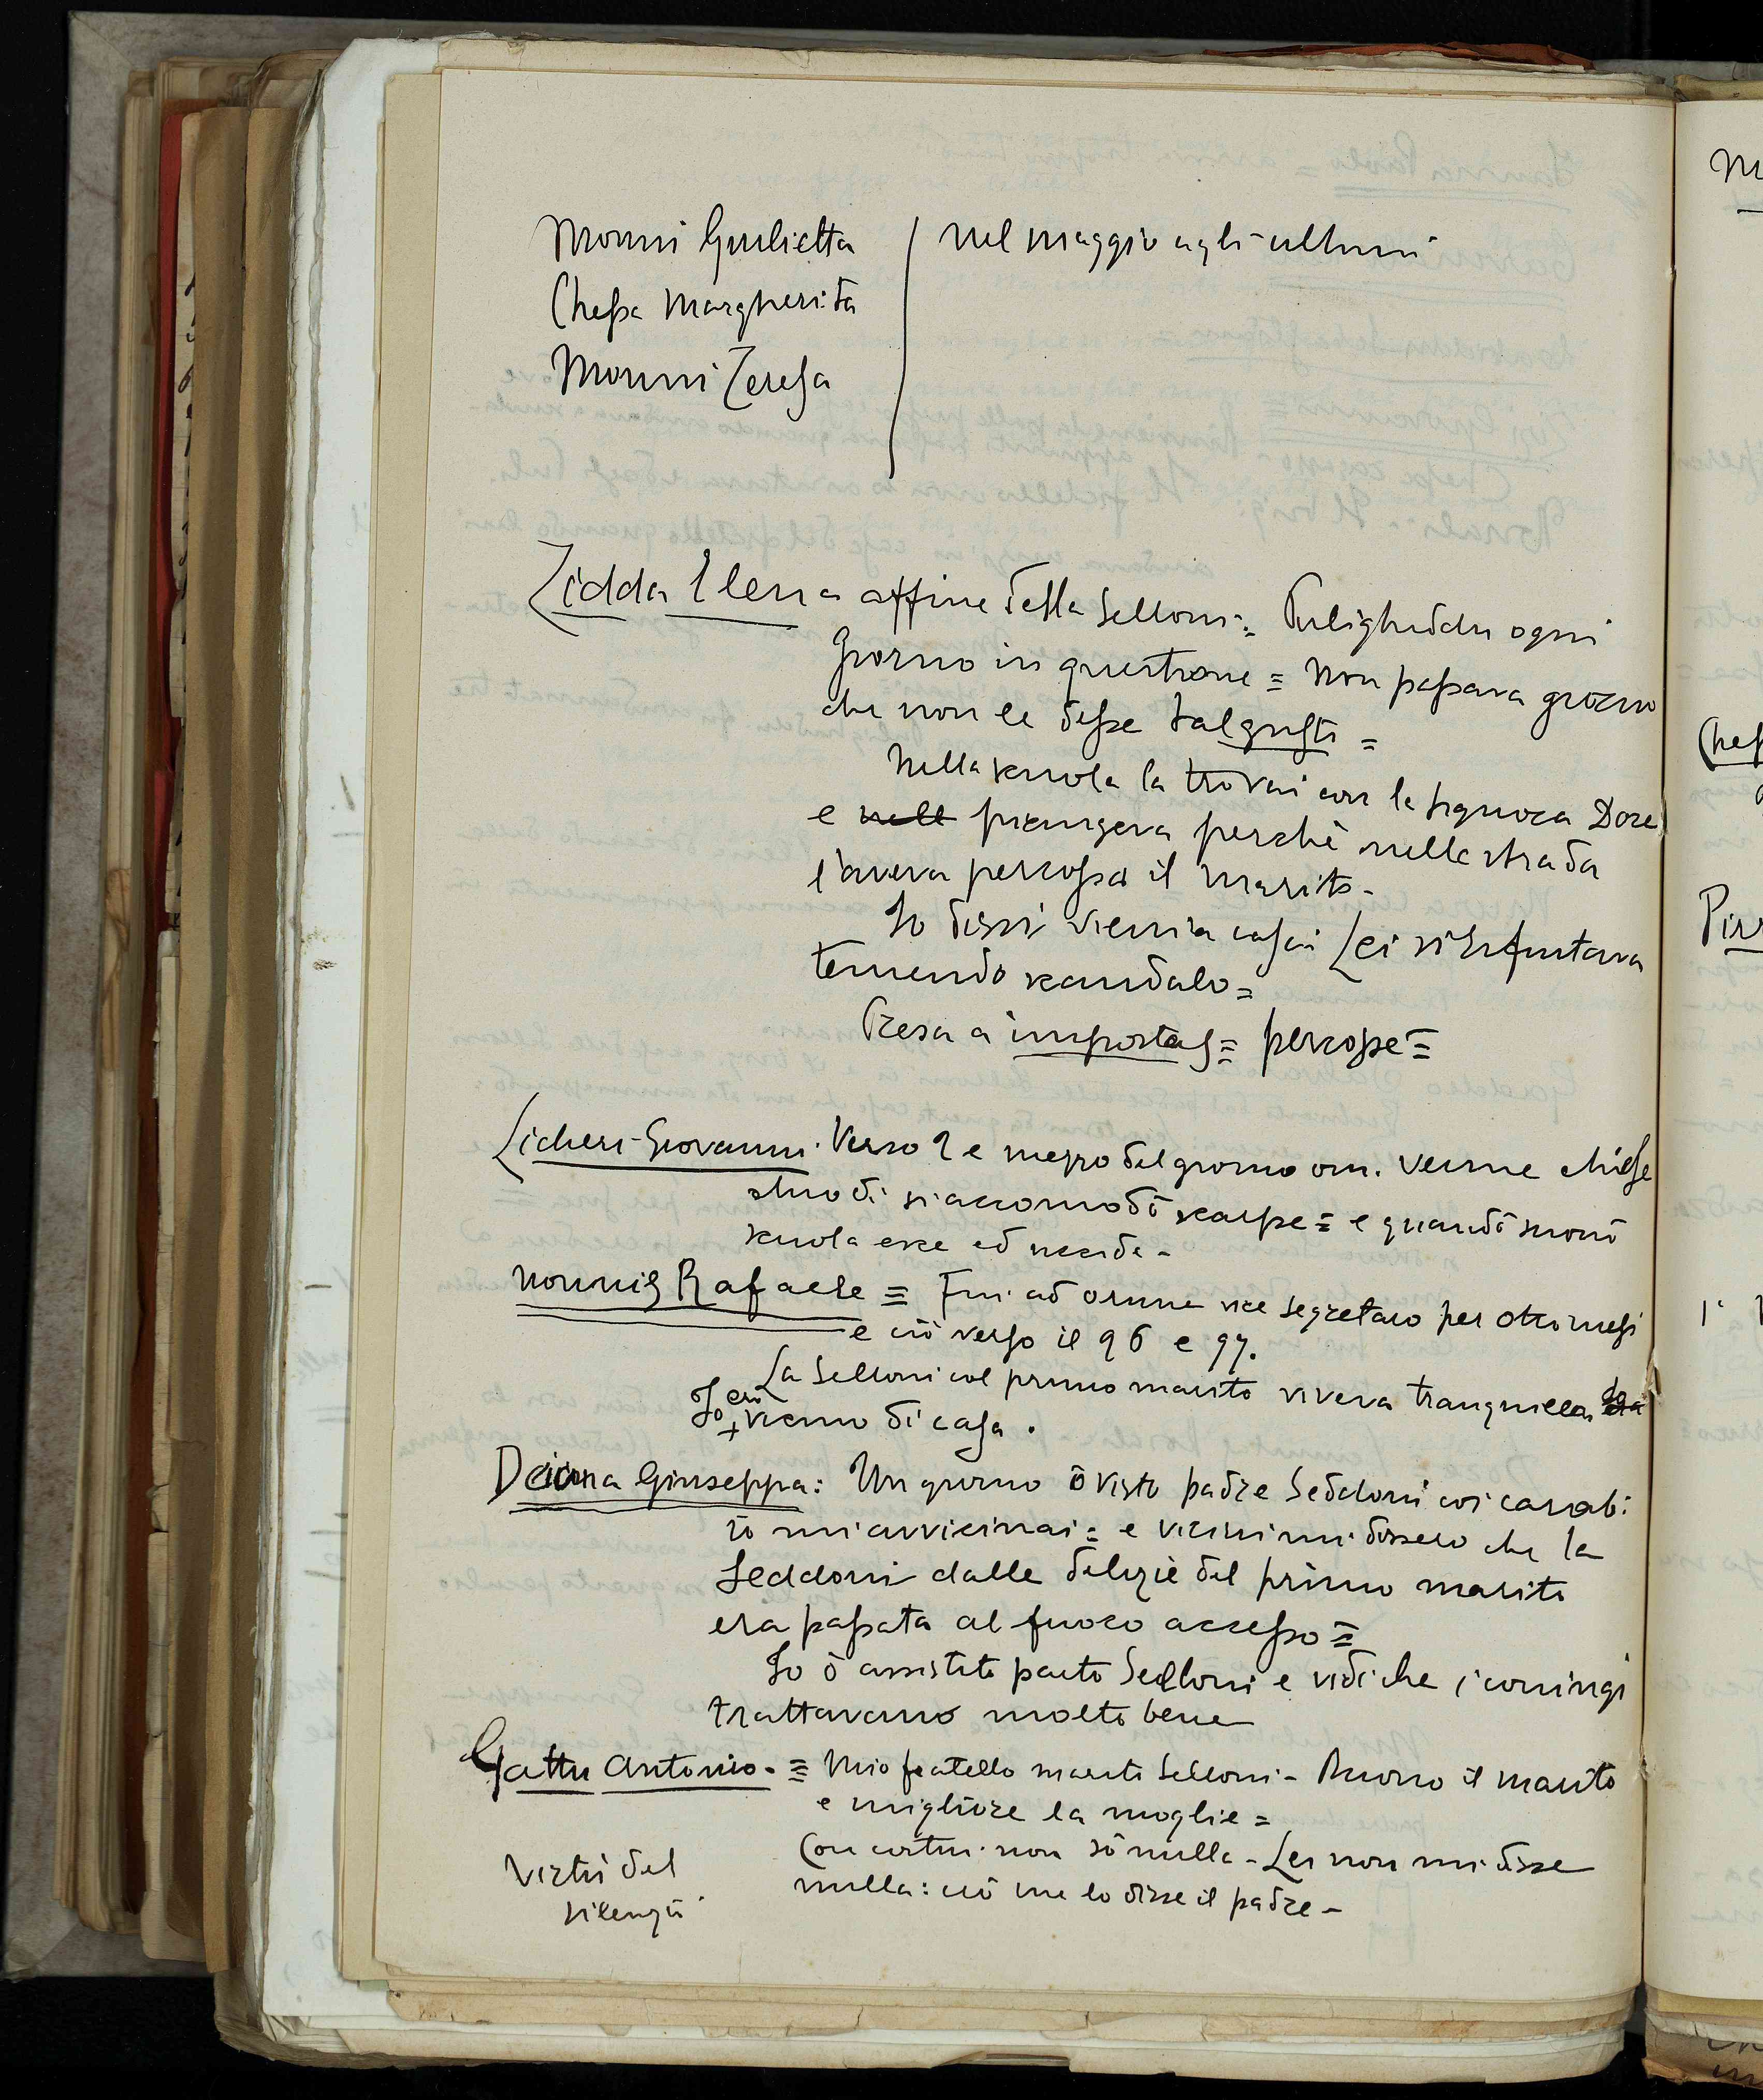 Monni Giulietta | nel maggio agli ultimi
Chessa Margherita
Monni Teresa
Zidda Elena affine della Selloni = Puligheddu ogni
giorno in questione = Non passava giorno
che non le desse dalgusti =
Nella scuola la trovai con la signora Dore
e nell piangeva perchè nella strada
l'aveva percossa il marito -
Io dissi vieni a casa Lei si rifiutava
temendo scandalo =
Presa a = percosse =
Licheri Giovanni. Verso 2 e mezzo del giorno om. venne chiese
chiodi si accomodò scarpe = e quando suonò
scuola esce ed uccide -
Nonnis Rafaele = Fui ad Orune vice segretaro per otto mesi
e ciò verso il 96 e 97.
La Selloni col primo marito viveva tranquilla
Io ero vicino di casa.
Deiana Giuseppa: Un giorno ò visto padre Seddoni coi carab:
io mi avvicinai = e vicini mi dissero che la
Seddoni dalle delizie del primo marito
era passata al fuoco accesso =
Io ò assistito parto Selloni e vidi che i coniugi
trattavano molto bene
Gattu Antonio - = Mio fratello marito Selloni - Buono il marito
e migliore la moglie =
Con costui non sò nulla - Lei non mi disse
nulla: ciò me lo disse il padre -
Virtù del
silenzio